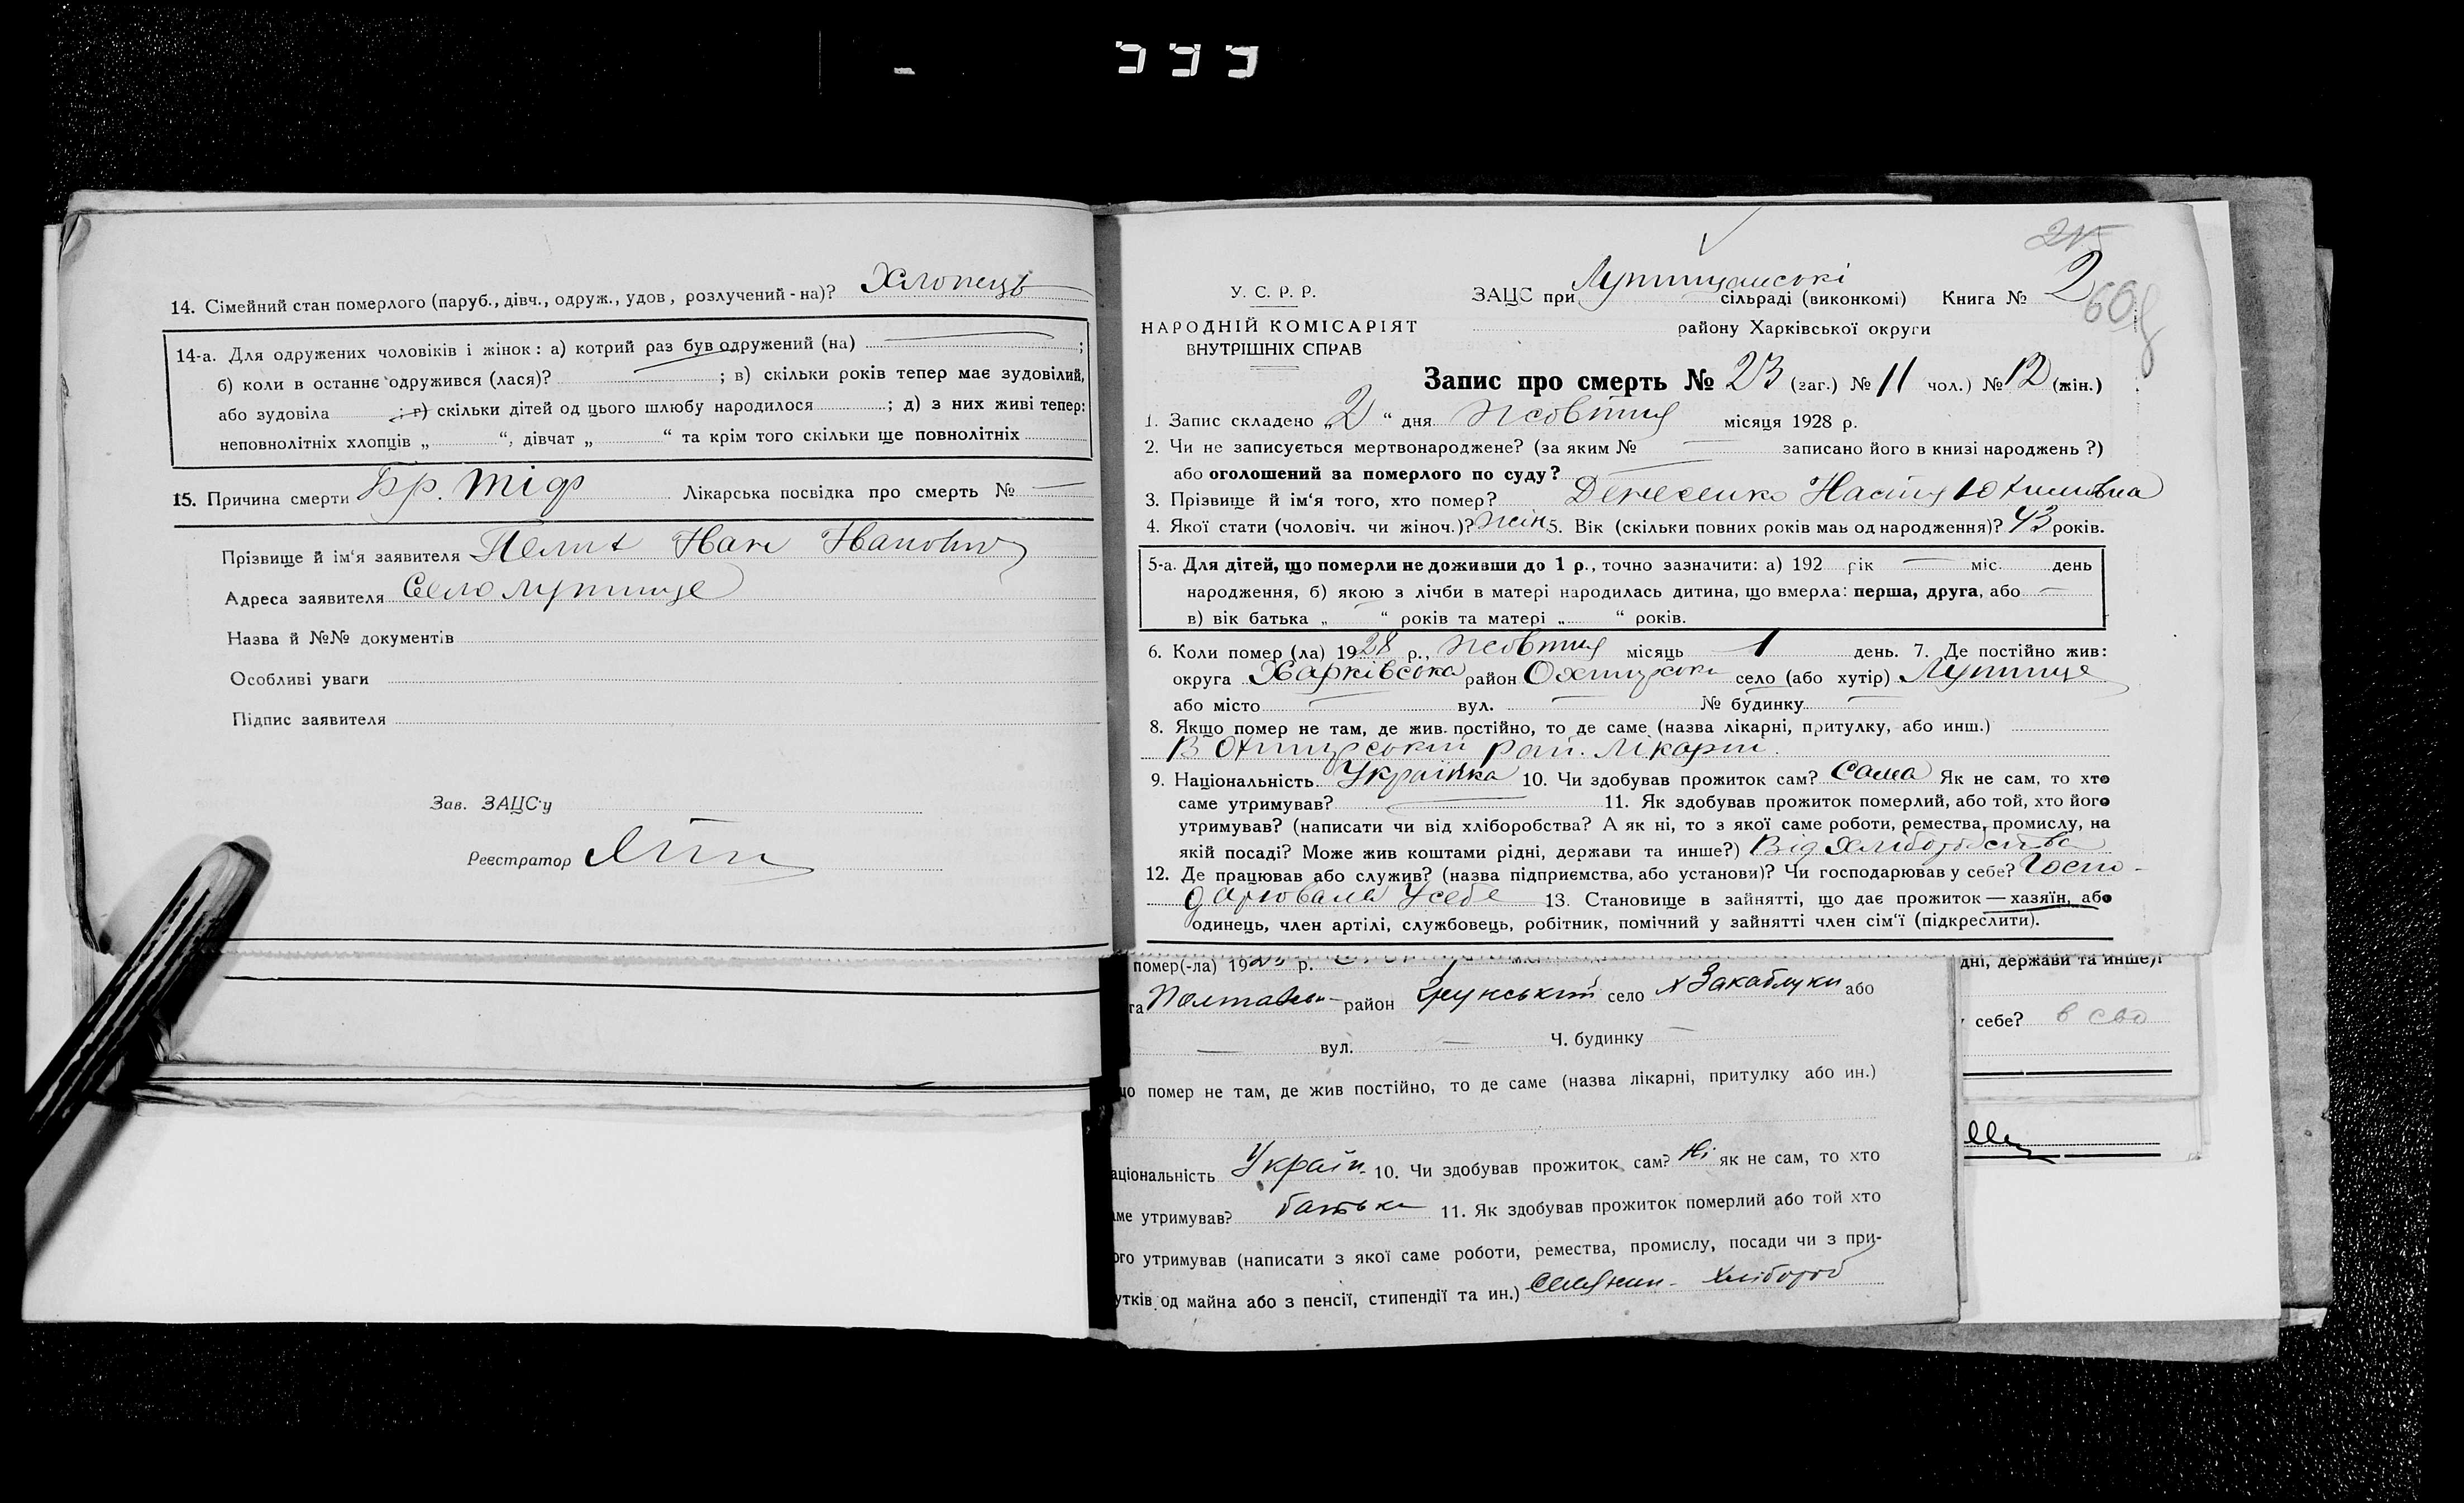 14. Сімейний стан померлого (паруб., дівч., одруж., удов, розлучений-на)? Хлопець
14-а. Для одружених чоловіків і жінок: а) котрий раз був одружений (на)
б) коли в останнє одружився (лася)? ; в) скільки років тепер має зудовілий,
або зудовіла ; г) скільки дітей од цього шлюбу народилося ; д) з них живі тепер:
неповнолітніх хлопців „ “, дівчат „ “ та крім того скільки ще повнолітніх
15. Причина смерти Бр. тіф Лікарська посвідка про смерть № —
Прізвище й ім'я заявителя
Адреса заявителя Село Лутище
Назва й №№ документів
Особливі уваги
Підпис заявителя
Зав. ЗАЦС'у
Реєстратор
215
У. С. Р. Р.
НАРОДНІЙ КОМІСАРІЯТ
ВНУТРІШНІХ СПРАВ
ЗАЦС при Лутищанські сільраді (виконкомі) Книга № 2
60
району Харківської округи
Запис про смерть № 23 (заг.) № 11 чол.) № 12 (жін.)
1. Запис складено „2“ дня Жовтня місяця 1928 р.
2. Чи не записується мертвонароджене? (за яким № — записано його в книзі народжень ?)
або оголошений за померлого по суду? —
3. Прізвище й ім'я того, хто помер? Денесенко Настя Юхимовна
4. Якої статі (чоловіч. чи жіноч.)? жін 5. Вік (скільки повних років мав од народження)? 43 років.
5-а. Для дітей, що померли не доживши до 1 р., точно зазначити: а) 192 рік — міс. день
народження, б) якою з лічби в матері народилась дитина, що вмерла: перша, друга, або —
в) вік батька „ “ років та матері „ “ років.
6. Коли помер (ла) 1928 р., Жовтня місяць 1 день. 7. Де постійно жив:
округа Харківська район Охтирськи село (або хутір) Лутище
або місто — вул. — № будинку —
8. Якщо помер не там, де жив постійно, то де саме (назва лікарні, притулку, або инш.)
В Охтирський рай. лікарні.
9. Національність Українка 10. Чи здобував прожиток сам? Сама Як не сам, то хто
саме утримував? — 11. Як здобував прожиток померлий, або той, хто його
утримував? (написати чи від хліборобства? А як ні, то з якої саме роботи, ремества, промислу, на
якій посаді? Може жив коштами рідні, держави та инше?) Від Хліборобства
12. Де працював або служив? (назва підприємства, або установи)? Чи господарював у себе? Госпо-
дарювала У себе 13. Становище в зайнятті, що дає прожиток — хазяїн, або
одинець, член артілі, службовець, робітник, помічний у зайнятті член сім'ї (підкреслити).
помер(-ла) 192 р.
га Полтавськ район Грунський село х Закаблуки або
— вул. — Ч. будинку —
що помер не там, де жив постійно, то де саме (назва лікарні, притулку або ин.)
аціональність Україн. 10. Чи здобував прожиток сам? Ні як не сам, то хто
аме утримував? батько 11. Як здобував прожиток померлий або той хто
ого утримував (написати з якої саме роботи, ремества, промислу, посади чи з при-
утків од майна або з пенсії, стипендії та ин.) Селянин - хлібороб
дні, держави та инше)?
себе? в сво